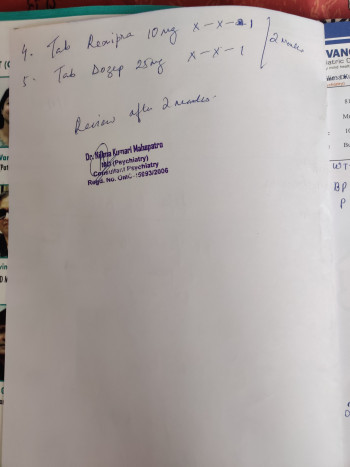 4. Tab Rexipra 10mg x-x-1
5. Tab Dozep 25mg x-x-1
2 weeks
Review after 2 weeks.
Dr. Kumari Mahapatra
MD (Psychiatry)
Consultant Psychiatry
Regd. No. 15693/2006
VANC
WT
BP
P